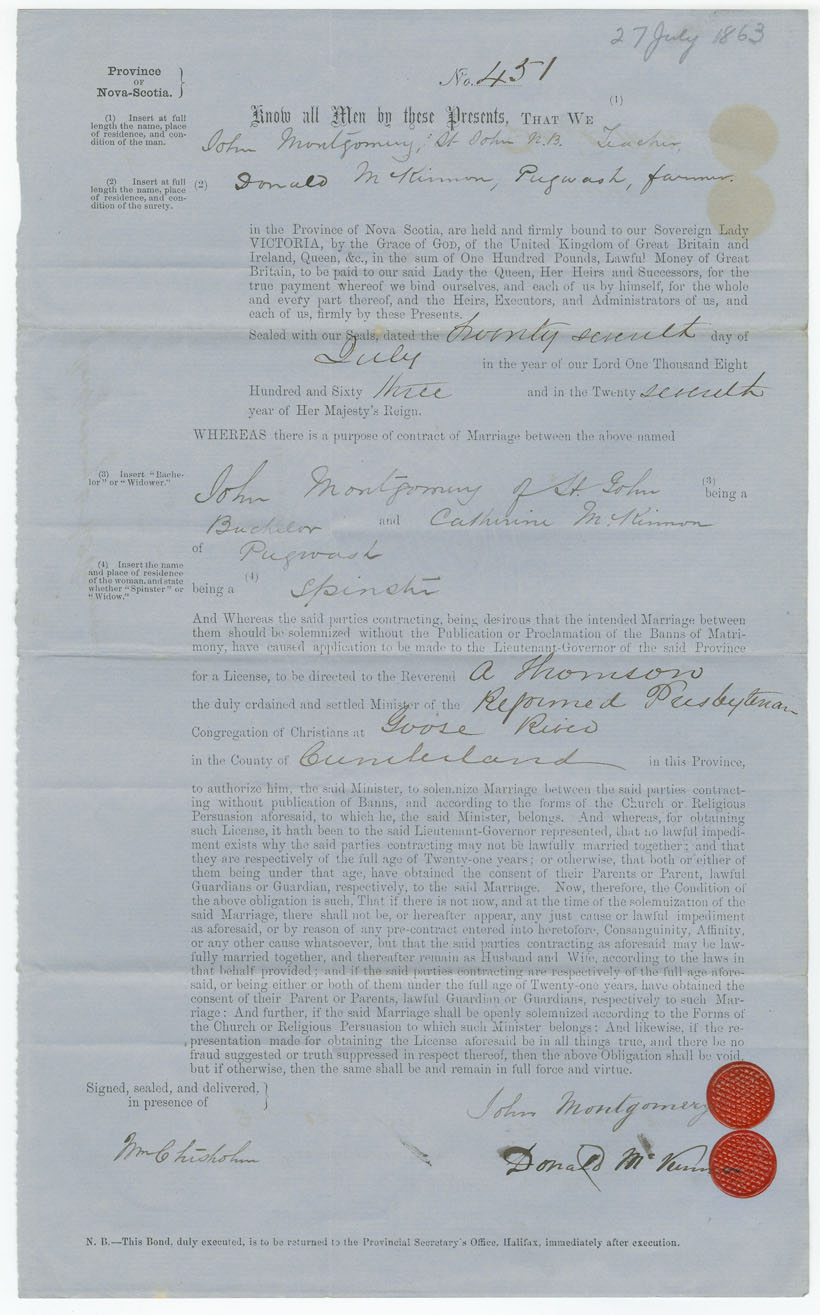 27 July 1863
Province
OF
Nova-Scotia.
No. 451
(1) Insert at full
length the name, place
of residence, and con-
dition of the man.
Know all Men by these Presents, THAT WE (1)
John Montgomery, St John N.B. Teacher,
(2) Insert at full
length the name, place
of residence, and con-
dition of the surety.
(2) Donald McKinnon, Pugwash, farmer.
in the Province of Nova Scotia, are held and firmly bound to our Sovereign Lady
VICTORIA, by the Grace of GOD, of the United Kingdom of Great Britain and
Ireland, Queen, &c., in the sum of One Hundred Pounds, Lawful Money of Great
Britain, to be paid to our said Lady the Queen, Her Heirs and Successors, for the
true payment whereof we bind ourselves, and each of us by himself, for the whole
and every part thereof, and the Heirs, Executors, and Administrators of us, and
each of us, firmly by these Presents.
Sealed with our Seals, dated the twenty seventh day of
July in the year of our Lord One Thousand Eight
Hundred and Sixty three and in the Twenty seventh
year of Her Majesty's Reign.
WHEREAS there is a purpose of contract of Marriage between the above named
(3) Insert "Bache-
lor" or "Widower."
John Montgomery of St. John (3) being a
Bachelor and Catherine McKinnon
of Pugwash
(4) Insert the name
and place of residence
of the woman, and state
whether "Spinster" or
"Widow."
being a (4) Spinster
And Whereas the said parties contracting, being desirous that the intended Marriage between
them should be solemnized without the Publication or Proclamation of the Banns of Matri-
mony, have caused application to be made to the Lieutenant-Governor of the said Province
for a License, to be directed to the Reverend A Thomson
the duly ordained and settled Minister of the Reformed Presbyterian
Congregation of Christians at Goose River
in the County of Cumberland in this Province,
to authorize him, the said Minister, to solemnize Marriage between the said parties contract-
ing without publication of Banns, and according to the forms of the Church or Religious
Persuasion aforesaid, to which he, the said Minister, belongs. And whereas, for obtaining
such License, it hath been to the said Lieutenant-Governor represented, that no lawful impedi-
ment exists why the said parties contracting may not be lawfully married together; and that
they are respectively of the full age of Twenty-one years; or otherwise, that both or either of
them being under that age, have obtained the consent of their Parents or Parent, lawful
Guardians or Guardian, respectively, to the said Marriage. Now, therefore, the Condition of
the above obligation is such, That if there is not now, and at the time of the solemnization of the
said Marriage, there shall not be, or hereafter appear, any just cause or lawful impediment
as aforesaid, or by reason of any pre-contract entered into heretofore, Consanguinity, Affinity,
or any other cause whatsoever, but that the said parties contracting as aforesaid may be law-
fully married together, and thereafter remain as Husband and Wife, according to the laws in
that behalf provided; and if the said parties contracting are respectively of the full age afore-
said, or being either or both of them under the full age of Twenty-one years, have obtained the
consent of their Parent or Parents, lawful Guardian or Guardians, respectively to such Mar-
riage: And further, if the said Marriage shall be openly solemnized according to the Forms of
the Church or Religious Persuasion to which such Minister belongs: And likewise, if the re-
presentation made for obtaining the License aforesaid be in all things true, and there be no
fraud suggested or truth suppressed in respect thereof, then the above Obligation shall be void,
but if otherwise, then the same shall be and remain in full force and virtue.
Signed, sealed, and delivered,
in presence of
John Montgomery
Wm Chisholm
Donald McKinnon
N. B.—This Bond, duly executed, is to be returned to the Provincial Secretary's Office, Halifax, immediately after execution.